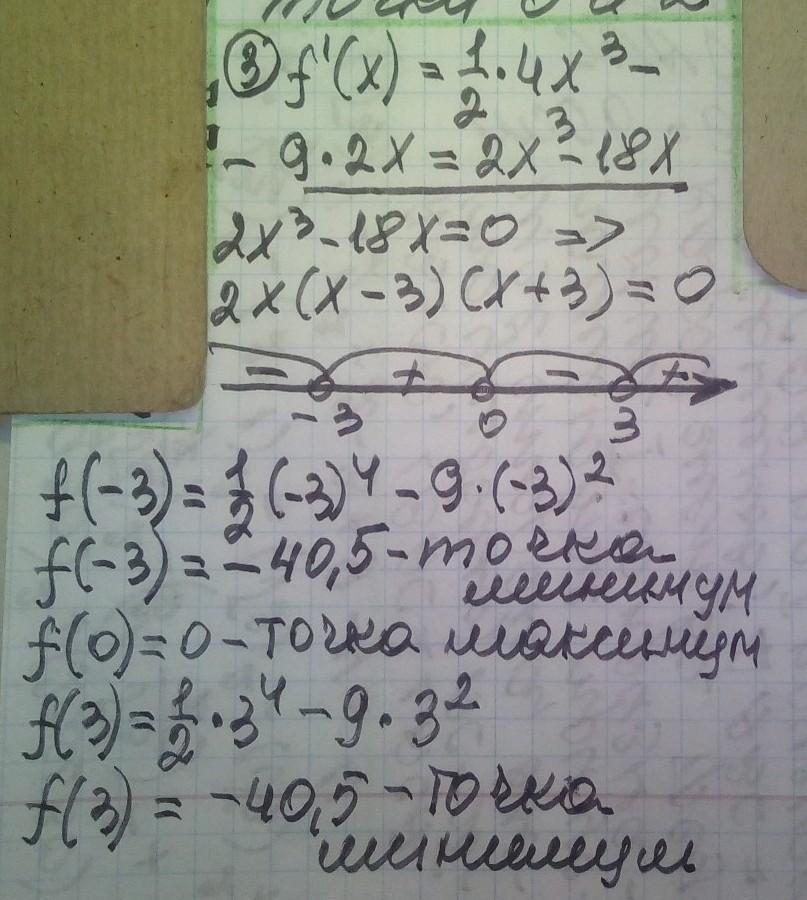 ③ f'(x) = 1/2 · 4x³ -
- 9 · 2x = 2x³ - 18x
2x³ - 18x = 0 =>
2x(x - 3)(x + 3) = 0
- + - +
-3 0 3
f(-3) = 1/2 (-3)⁴ - 9 · (-3)²
f(-3) = -40,5 - точка
минимум
f(0) = 0 - точка максимум
f(3) = 1/2 · 3⁴ - 9 · 3²
f(3) = -40,5 - точка
минимум